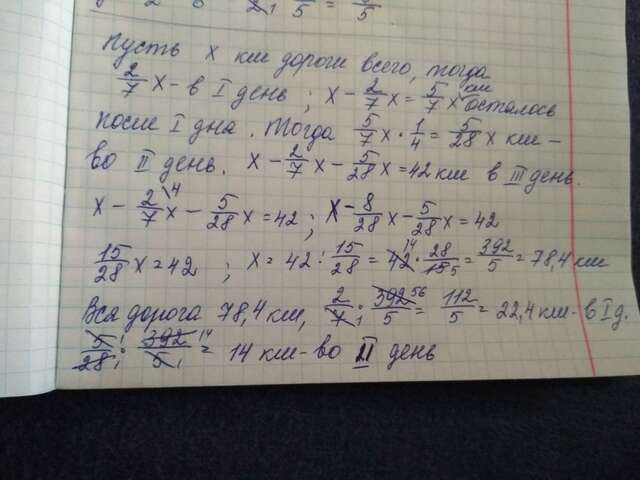 Пусть x км дороги всего, тогда
2/7 x - в I день; x - 2/7 x = 5/7 x км осталось
после I дня. Тогда 5/7 x · 1/4 = 5/28 x км -
во II день. x - 2/7 x - 5/28 x = 42 км в III день.
x - 2/7 x \4 - 5/28 x = 42; x - 8/28 x - 5/28 x = 42
15/28 x = 42; x = 42 : 15/28 = 42 14 · 28/15 5 = 392/5 = 78,4 км
Вся дорога 78,4 км, 2/7 1 · 392 56/5 = 112/5 = 22,4 км - в I д.
5 1/28 1 · 392 14/5 1 = 14 км - во II день